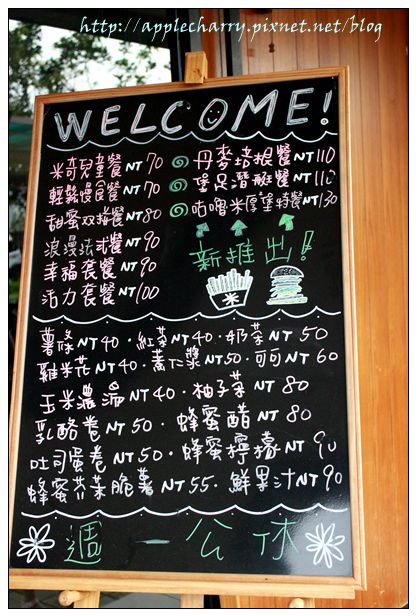 http://applecharry.pixnet.net/blog
WELCOME!
米奇兒童餐NT70
輕鬆慢食餐NT70
甜蜜双拼餐NT80
浪漫法式餐NT90
幸福套餐NT90
活力套餐NT100
丹麥培根餐NT110
堡足潛艇餐NT110
咕嚕米厚堡特餐NT130
新推出!
薯條NT40・紅茶NT40・奶茶NT50
雞米花NT40・薏仁漿NT50・可可NT60
玉米濃湯NT40・柚子茶NT80
乳酪卷NT50・蜂蜜醋NT80
吐司蛋卷NT50・蜂蜜檸檬NT90
蜂蜜芥茉脆薯NT55・鮮果汁NT90
週一公休